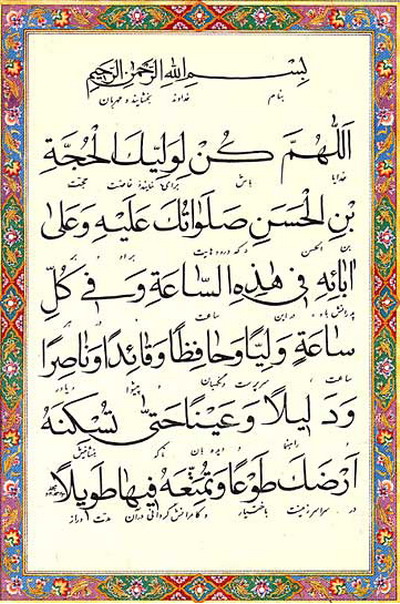 بِسْمِ اللهِ الرَّحْمٰنِ الرَّحِيمِ
بنام خداوند بخشاینده و مهربان
اَللّٰهُمَّ كُنْ لِوَلِيِّكَ الْحُجَّةِ
خدایا باش برای نمایندهٔ خاصت حجت
بْنِ الْحَسَنِ صَلَوٰاتُكَ عَلَيْهِ وَعَلىٰ
بن الحسن که درودهایت بر او و بر
اٰبائِهِ فى هٰذِهِ السّٰاعَةِ وَفى كُلِّ
پدرانش باد در این ساعت و در هر
سٰاعَةٍ وَلِيًّا وَحٰافِظًا وَقٰائِدًا وَنٰاصِرًا
ساعت سرپرست و نگهبان و پیشوا و یاور
وَدَلِيلًا وَعَيْنًا حَتّىٰ تُسْكِنَهُ
و راهنما و دیده بان تا که بنشانیش
اَرْضَكَ طَوْعًا وَتُمَتِّعَهُ فِيهٰا طَوِيلًا
در سراسر زمینت باختیار و کامرانش گردانی در آن مدت دراز